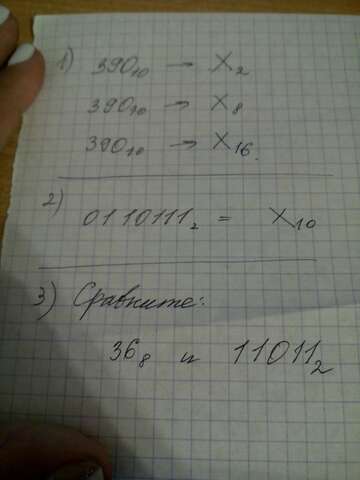 1) 390₁₀ → X₂
390₁₀ → X₈
390₁₀ → X₁₆.
2) 0110111₂ = X₁₀
3) Сравните:
36₈ и 11011₂